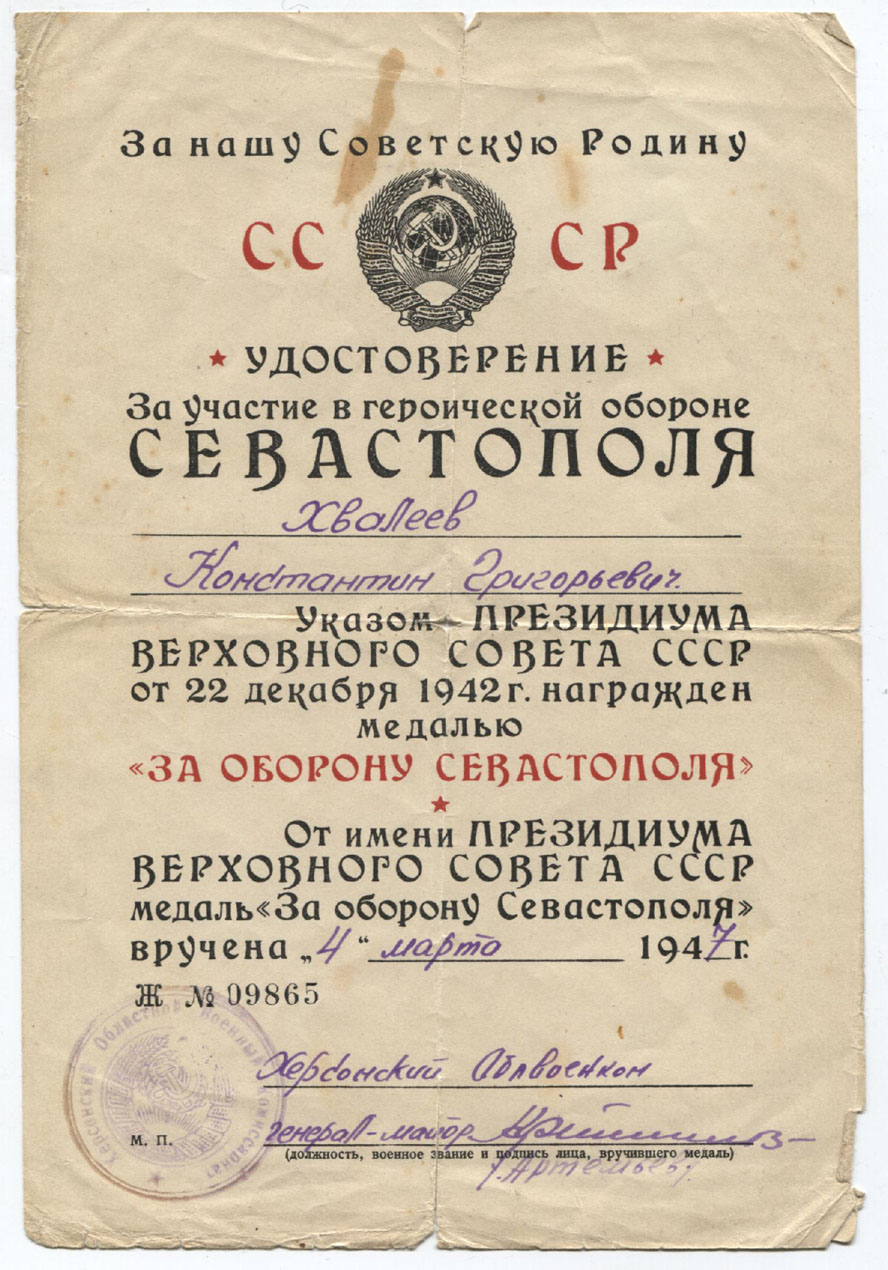 За нашу Советскую Родину
СССР
УДОСТОВЕРЕНИЕ
За участие в героической обороне
СЕВАСТОПОЛЯ
Хвалеев
Константин Григорьевич.
Указом ПРЕЗИДИУМА
ВЕРХОВНОГО СОВЕТА СССР
от 22 декабря 1942 г. награжден
медалью
«ЗА ОБОРОНУ СЕВАСТОПОЛЯ»
От имени ПРЕЗИДИУМА
ВЕРХОВНОГО СОВЕТА СССР
медаль «За оборону Севастополя»
вручена „4“ марта 1947 г.
Ж № 09865
Херсонский Областной Военный Комиссариат
Херсонский Облвоенком
М. П.
генерал-майор
(должность, военное звание и подпись лица, вручившего медаль)
(Артемьев).